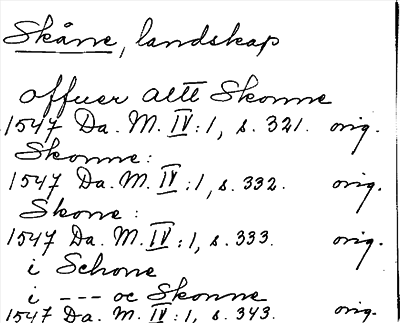 Skåne, landskap
offuer altt Skonne
1547 Da. M. IV:1, s. 321. orig.
Skonne:
1547 Da. M. IV:1, s. 332. orig.
Skone:
1547 Da. M. IV:1, s. 333. orig.
i Schone
i --- oc Skonne
1547 Da. M. IV:1, s. 343. orig.